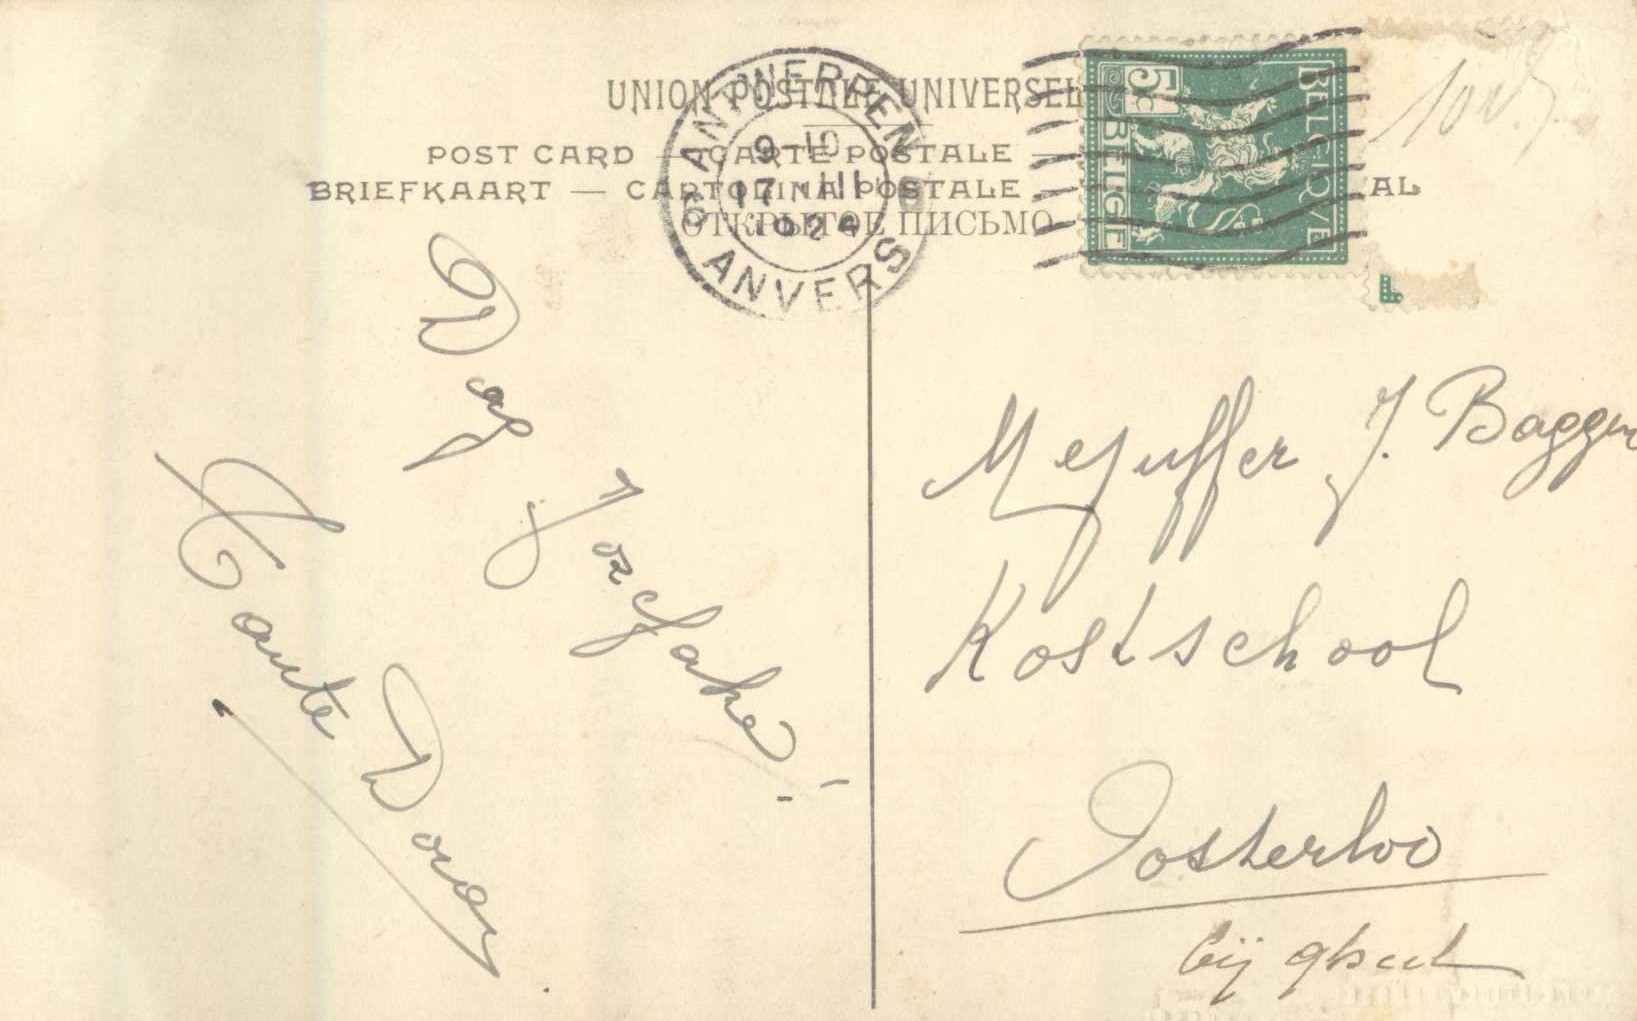 UNION POSTALE UNIVERSEL
POST CARD — CARTE POSTALE —
BRIEFKAART — CARTOLINA POSTALE AL
ОТКРЫТОЕ ПИСЬМО
ANTWERPEN 6
9-10
17 III
ANVERS
BELGIQUE
5c
BELGIË
Dag
Jozefake!
Tante
Mejuffer J. Baggen
Kostschool
Oosterloo
bij Gheel